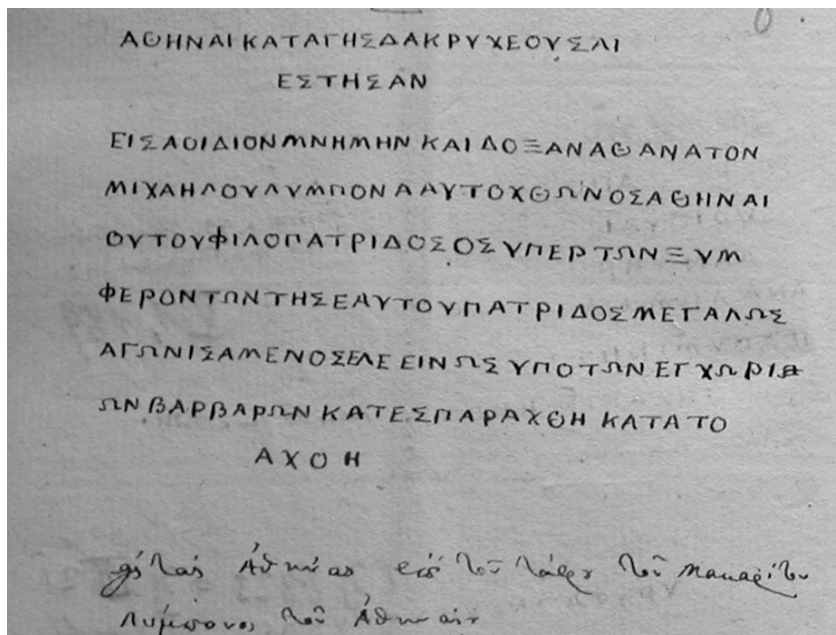 ΑΘΗΝΑΙ ΚΑΤΑ ΓΗΣ ΔΑΚΡΥΧΕΟΥΣΑΙ
ΕΣΤΗΣΑΝ
ΕΙΣ ΑΟΙΔΙΟΝ ΜΝΗΜΗΝ ΚΑΙ ΔΟΞΑΝ ΑΘΑΝΑΤΟΝ
ΜΙΧΑΗΛΟΥ ΛΥΜΠΟΝΑ ΑΥΤΟΧΘΩΝΟΣ ΑΘΗΝΑΙ
ΟΥ ΤΟΥ ΦΙΛΟΠΑΤΡΙΔΟΣ ΟΣ ΥΠΕΡ ΤΩΝ ΞΥΜ
ΦΕΡΟΝΤΩΝ ΤΗΣ ΕΑΥΤΟΥ ΠΑΤΡΙΔΟΣ ΜΕΓΑΛΩΣ
ΑΓΩΝΙΣΑΜΕΝΟΣ ΕΛΕΕΙΝΩΣ ΥΠΟ ΤΩΝ ΕΓΧΩΡΙ
ΩΝ ΒΑΡΒΑΡΩΝ ΚΑΤΕΣΠΑΡΑΧΘΗ ΚΑΤΑ ΤΟ
ΑΧΟΗ
Ἀθήνας τοῦ τάφου τοῦ μακαρίτου
Λυμπονος τοῦ Ἀθηναίου